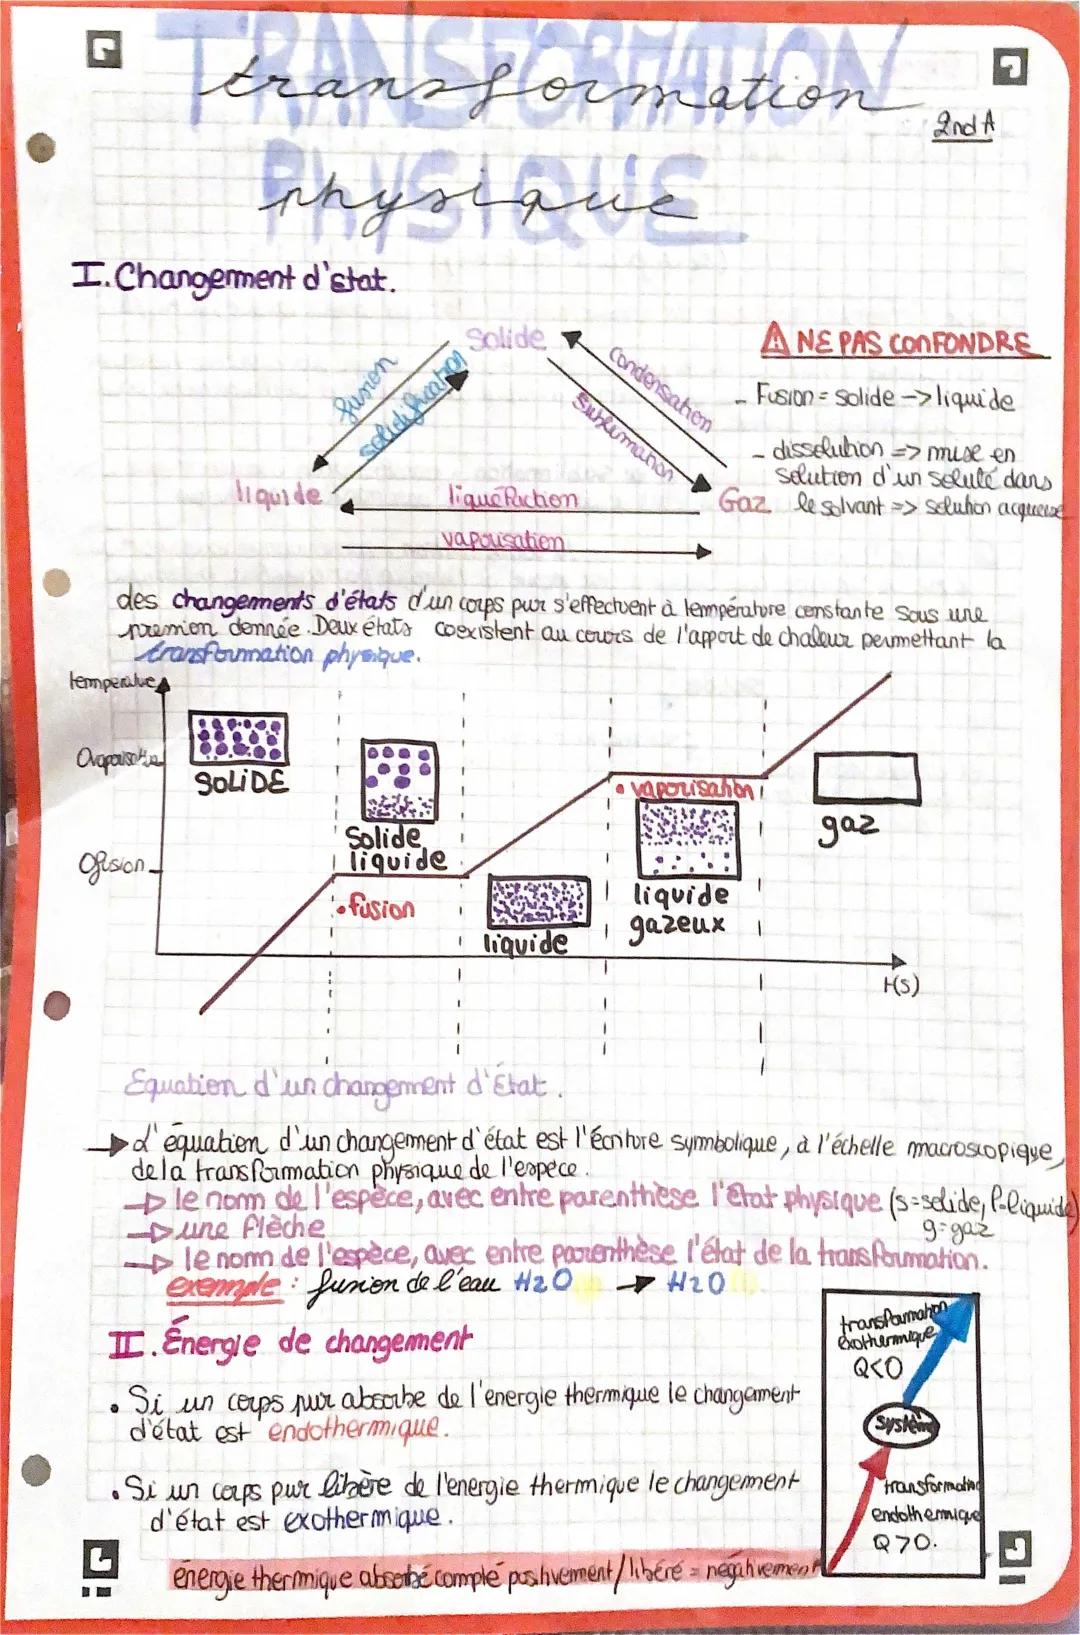 TRANSFORMATION
transformation
2nd A
PHYSIQUE
physique
I. Changement d'état.
Solide
fusion
solidification
condensation
sublimation
liquide
liquéfaction
Gaz
vaporisation
⚠ NE PAS CONFONDRE
- Fusion = solide -> liquide
- dissolution => mise en
solution d'un soluté dans
le solvant => solution acqueuse
des changements d'états d'un corps pur s'effectuent à température constante sous une
pression donnée. Deux états coexistent au cours de l'apport de chaleur permettant la
transformation physique.
température
θvaporisation
SOLIDE
Solide
liquide
• vaporisation
gaz
θfusion
• fusion
liquide
liquide
gazeux
t(s)
Equation d'un changement d'État.
→ L'équation d'un changement d'état est l'écriture symbolique, à l'échelle macroscopique,
de la transformation physique de l'espèce.
→ le nom de l'espèce, avec entre parenthèse l'état physique (s=solide, l=liquide)
g=gaz
→ une flèche
→ le nom de l'espèce, avec entre parenthèse l'état de la transformation.
exemple : fusion de l'eau H2O → H2O
II. Énergie de changement
• Si un corps pur absorbe de l'énergie thermique le changement
d'état est endothermique.
• Si un corps pur libère de l'énergie thermique le changement
d'état est exothermique.
énergie thermique absorbé compté positivement/libéré = négativement
transformation
exothermique
Q<0
système
transformation
endothermique
Q>0.